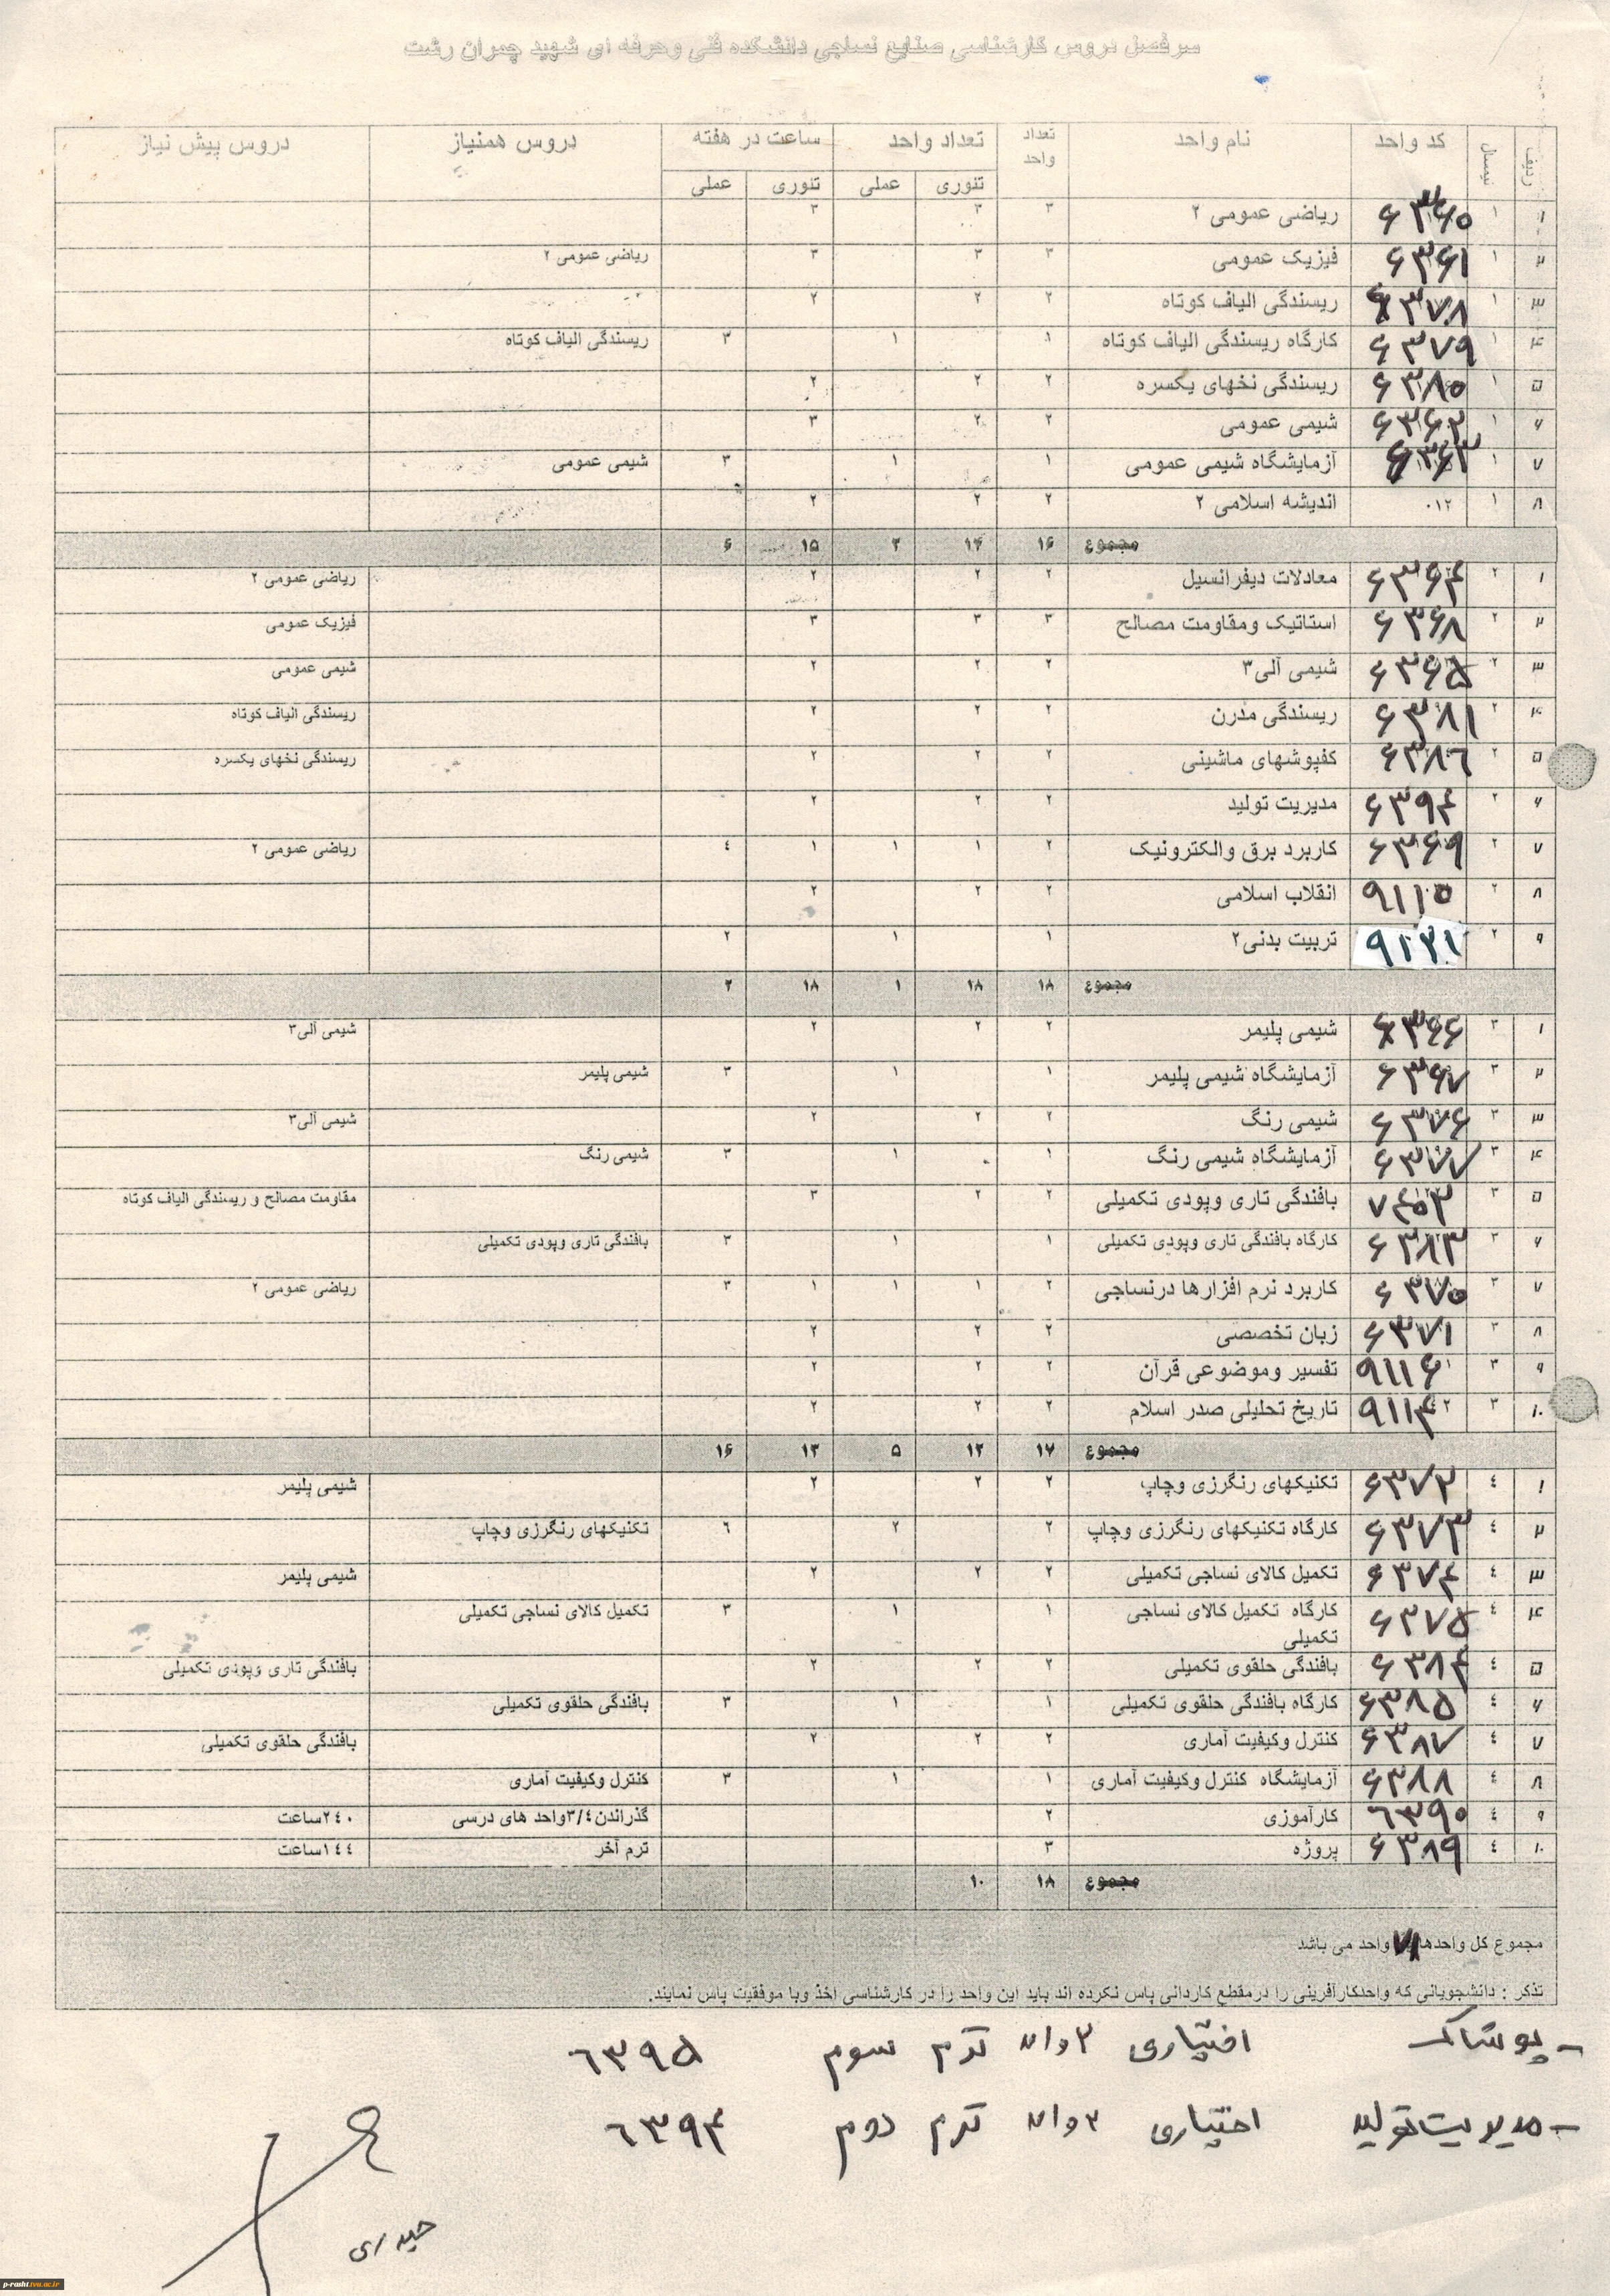 سرفصل دروس کارشناسی صنایع نساجی دانشکده فنی وحرفه ای شهید چمران رشت
ردیف نیمسال کد واحد نام واحد تعداد واحد تعداد واحد ساعت در هفته دروس همنیاز دروس پیش نیاز
تئوری عملی تئوری عملی
۱ ۱ ۶۳۶۰ ریاضی عمومی ۲ ۳ ۳ ۳
۲ ۱ ۶۳۶۱ فیزیک عمومی ۳ ۳ ۳ ریاضی عمومی ۲
۳ ۱ ۶۳۷۸ ریسندگی الیاف کوتاه ۲ ۲ ۲
۴ ۱ ۶۳۷۹ کارگاه ریسندگی الیاف کوتاه ۱ ۱ ۳ ریسندگی الیاف کوتاه
۵ ۱ ۶۳۸۰ ریسندگی نخهای یکسره ۲ ۲ ۲
۶ ۱ ۶۳۶۲ شیمی عمومی ۲ ۲ ۳
۷ ۱ ۶۳۶۳ آزمایشگاه شیمی عمومی ۱ ۱ ۳ شیمی عمومی
۸ ۱ ۰۱۲ اندیشه اسلامی ۲ ۲ ۲ ۲
مجموع ۱۶ ۱۴ ۲ ۱۵ ۶
۱ ۲ ۶۳۶۴ معادلات دیفرانسیل ۲ ۲ ۲ ریاضی عمومی ۲
۲ ۲ ۶۳۶۸ استاتیک ومقاومت مصالح ۳ ۳ ۳ فیزیک عمومی
۳ ۲ ۶۳۶۵ شیمی آلی۳ ۲ ۲ ۲ شیمی عمومی
۴ ۲ ۶۳۸۱ ریسندگی مدرن ۲ ۲ ۲ ریسندگی الیاف کوتاه
۵ ۲ ۶۳۸۶ کفپوشهای ماشینی ۲ ۲ ۲ ریسندگی نخهای یکسره
۶ ۲ ۶۳۹۴ مدیریت تولید ۲ ۲ ۲
۷ ۲ ۶۳۶۹ کاربرد برق والکترونیک ۲ ۱ ۱ ۱ ٤ ریاضی عمومی ۲
۸ ۲ ۹۱۱۵ انقلاب اسلامی ۲ ۲ ۲
۹ ۲ ۹۱۲۱ تربیت بدنی۲ ۱ ۱ ۲
مجموع ۱۸ ۱۸ ۱ ۱۸ ۲
۱ ۳ ۶۳۶۶ شیمی پلیمر ۲ ۲ ۲ شیمی آلی۳
۲ ۳ ۶۳۶۷ آزمایشگاه شیمی پلیمر ۱ ۱ ۳ شیمی پلیمر
۳ ۳ ۶۳۷۶ شیمی رنگ ۲ ۲ ۲ شیمی آلی۳
۴ ۳ ۶۳۷۷ آزمایشگاه شیمی رنگ ۱ ۱ ۳ شیمی رنگ
۵ ۳ بافندگی تاری وپودی تکمیلی ۲ ۲ ۳ مقاومت مصالح و ریسندگی الیاف کوتاه
۶ ۳ ۶۳۸۳ کارگاه بافندگی تاری وپودی تکمیلی ۱ ۱ ۳ بافندگی تاری وپودی تکمیلی
۷ ۳ ۶۳۷۰ کاربرد نرم افزارها درنساجی ۲ ۱ ۱ ۱ ۳ ریاضی عمومی ۲
۸ ۳ ۶۳۷۱ زبان تخصصی ۲ ۲ ۲
۹ ۳ ۹۱۱۶ تفسیر وموضوعی قرآن ۲ ۲ ۲
۱۰ ۳ ۹۱۱۴ تاریخ تحلیلی صدر اسلام ۲ ۲ ۲
مجموع ۱۷ ۱۲ ۵ ۱۳ ۱۶
۱ ٤ ۶۳۷۲ تکنیکهای رنگرزی وچاپ ۲ ۲ ۲ شیمی پلیمر
۲ ٤ ۶۳۷۳ کارگاه تکنیکهای رنگرزی وچاپ ۲ ۲ ٦ تکنیکهای رنگرزی وچاپ
۳ ٤ ۶۳۷۴ تکمیل کالای نساجی تکمیلی ۲ ۲ ۲ شیمی پلیمر
۴ ٤ ۶۳۷۵ کارگاه تکمیل کالای نساجی تکمیلی ۱ ۱ ۳ تکمیل کالای نساجی تکمیلی
۵ ٤ ۶۳۸۴ بافندگی حلقوی تکمیلی ۲ ۲ ۲ بافندگی تاری وپودی تکمیلی
۶ ٤ ۶۳۸۵ کارگاه بافندگی حلقوی تکمیلی ۱ ۱ ۳ بافندگی حلقوی تکمیلی
۷ ٤ ۶۳۸۷ کنترل وکیفیت آماری ۲ ۲ ۲ بافندگی حلقوی تکمیلی
۸ ٤ ۶۳۸۸ آزمایشگاه کنترل وکیفیت آماری ۱ ۱ ۳ کنترل وکیفیت آماری
۹ ٤ ۶۳۹۰ کارآموزی ۲ گذراندن۳/٤واحد های درسی ۲٤۰ساعت
۱۰ ٤ ۶۳۸۹ پروژه ۳ ترم آخر ۱٤٤ساعت
مجموع ۱۸ ۱۰
مجموع کل واحدها ۷۱ واحد می باشد
تذکر : دانشجویانی که واحدکارآفرینی را درمقطع کاردانی پاس نکرده اند باید این واحد را در کارشناسی اخذ وبا موفقیت پاس نمایند.
- پوشاک اختیاری ۲واحد ترم سوم ۶۳۹۵
- مدیریت تولید اختیاری ۲واحد ترم دوم ۶۳۹۴
حیدری
p-rasht.tvu.ac.ir